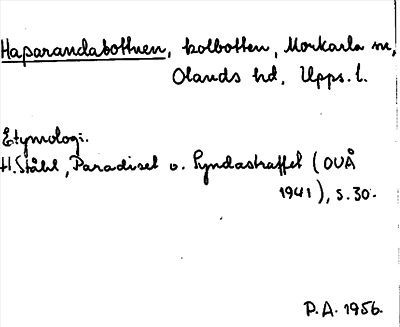 Haparandabottnen, kolbotten, Morkarla sn,
Olands hd, Upps. l.
Etymologi:
H. Ståhl, Paradiset o. Syndastraffet (OUÅ
1941), s. 30.
P.A. 1956.